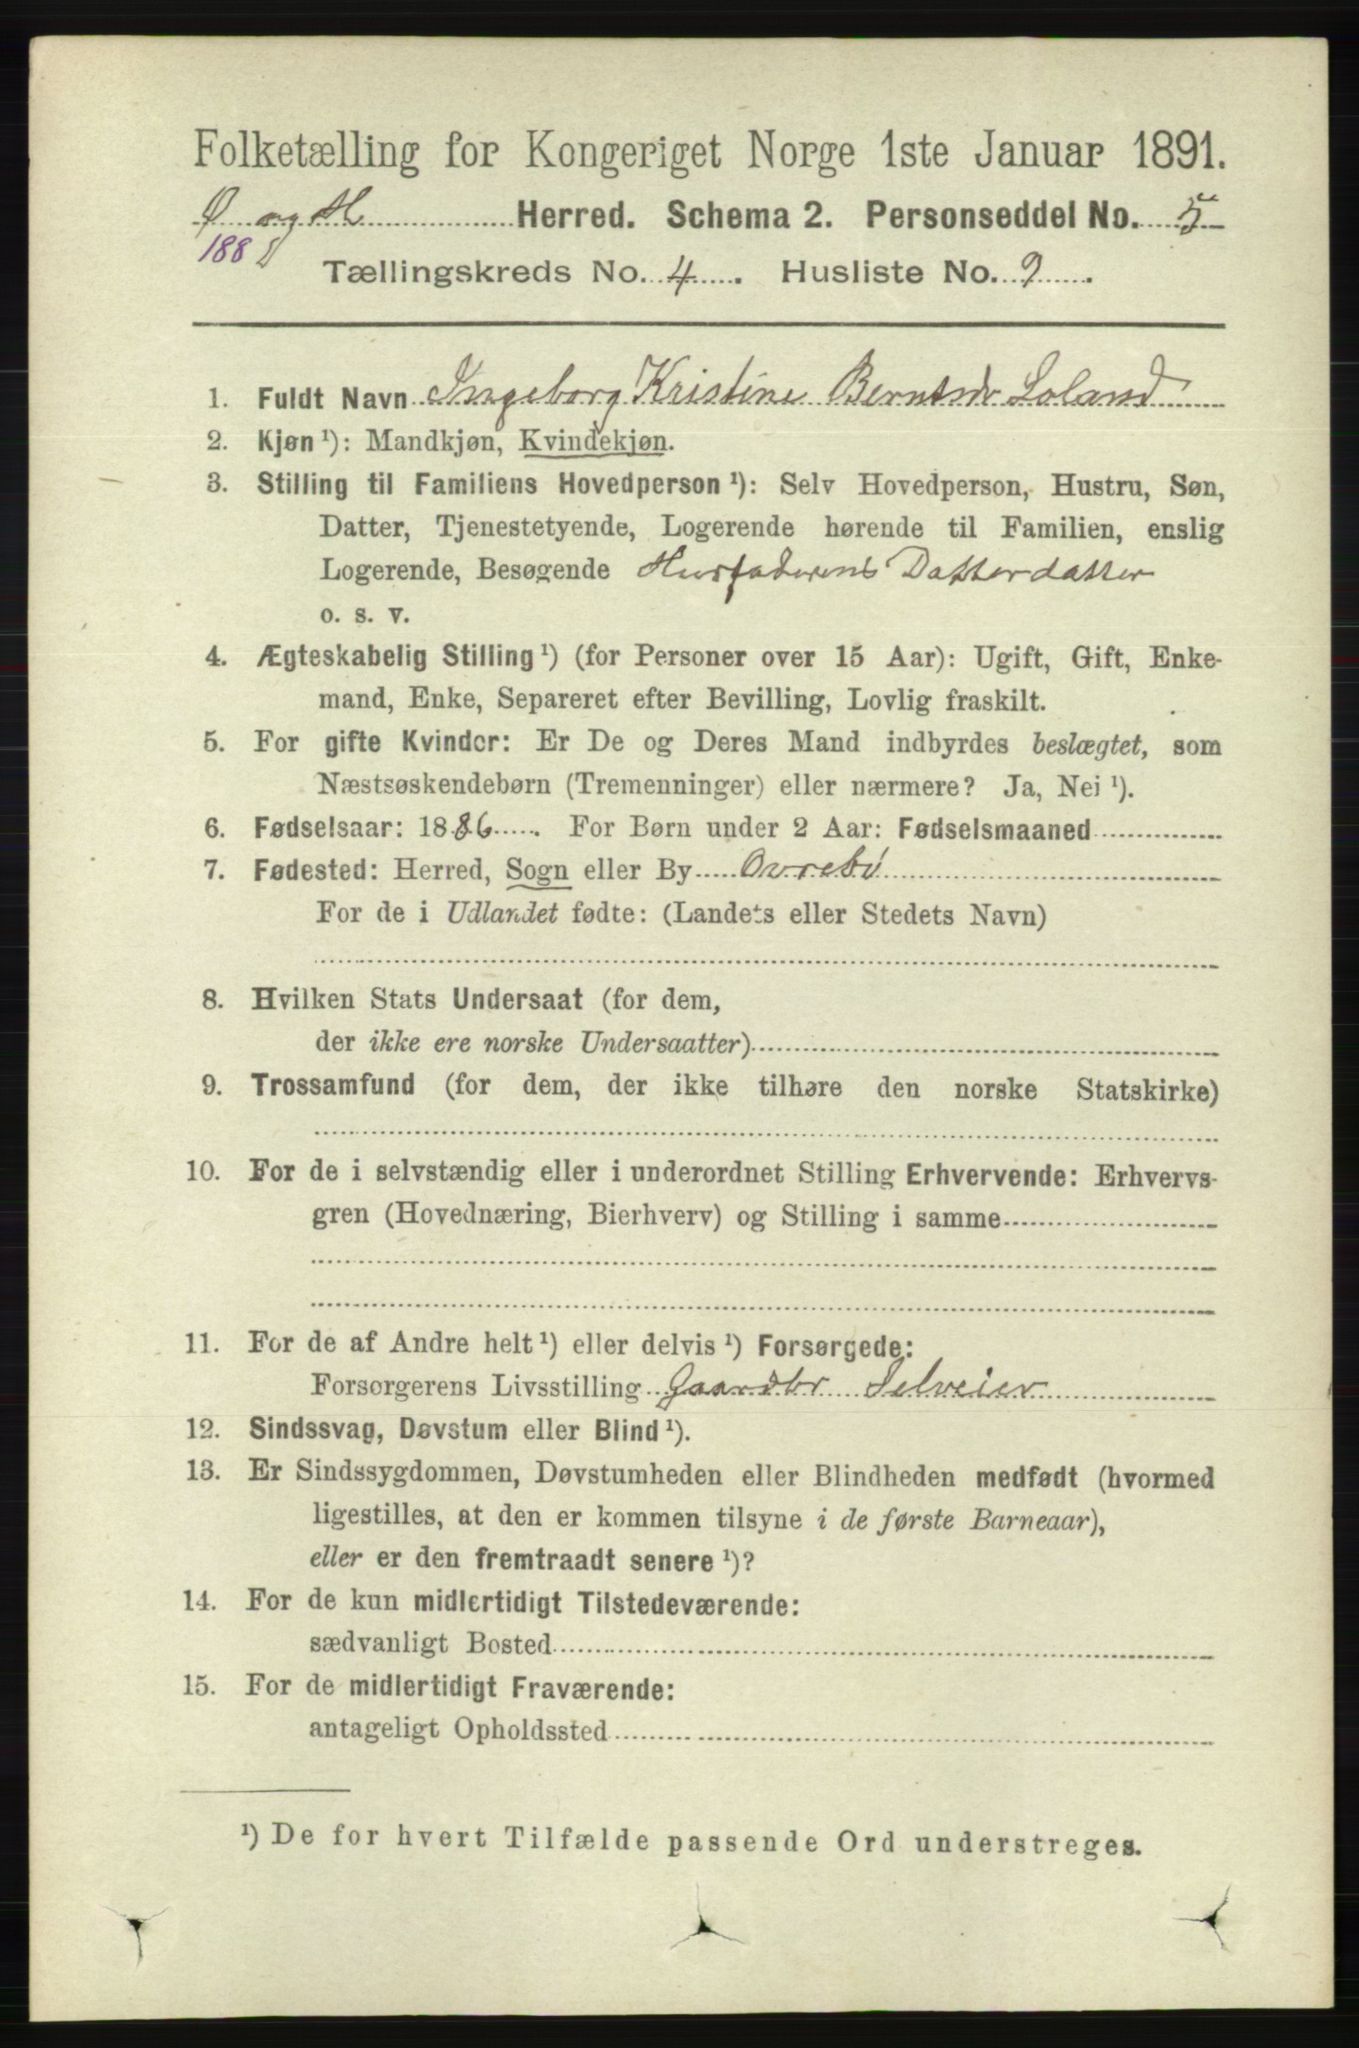 Folketælling for Kongeriget Norge 1ste Januar 1891.
Ø og H Herred. Schema 2. Personseddel No. 5
188
Tællingskreds No. 4. Husliste No. 9.
1. Fuldt Navn Ingeborg Kristine Berntsdr Loland
2. Kjøn ¹): Mandkjøn, Kvindekjøn.
3. Stilling til Familiens Hovedperson ¹): Selv Hovedperson, Hustru, Søn,
Datter, Tjenestetyende, Logerende hørende til Familien, enslig
Logerende, Besøgende Husfaderens Datterdatter
o. s. v.
4. Ægteskabelig Stilling ¹) (for Personer over 15 Aar): Ugift, Gift, Enke-
mand, Enke, Separeret efter Bevilling, Lovlig fraskilt.
5. For gifte Kvinder: Er De og Deres Mand indbyrdes beslægtet, som
Næstsøskendebørn (Tremenninger) eller nærmere? Ja, Nei ¹).
6. Fødselsaar: 1886. For Børn under 2 Aar: Fødselsmaaned
7. Fødested: Herred, Sogn eller By Øvrebø
For de i Udlandet fødte: (Landets eller Stedets Navn)
8. Hvilken Stats Undersaat (for dem,
der ikke ere norske Undersaatter)
9. Trossamfund (for dem, der ikke tilhøre den norske Statskirke)
10. For de i selvstændig eller i underordnet Stilling Erhvervende: Erhvervs-
gren (Hovednæring, Bierhverv) og Stilling i samme
11. For de af Andre helt ¹) eller delvis ¹) Forsørgede:
Forsørgerens Livsstilling Gaardbr Selveier
12. Sindssvag, Døvstum eller Blind ¹).
13. Er Sindssygdommen, Døvstumheden eller Blindheden medfødt (hvormed
ligestilles, at den er kommen tilsyne i de første Barneaar),
eller er den fremtraadt senere ¹)?
14. For de kun midlertidigt Tilstedeværende:
sædvanligt Bosted
15. For de midlertidigt Fraværende:
antageligt Opholdssted
¹) De for hvert Tilfælde passende Ord understreges.